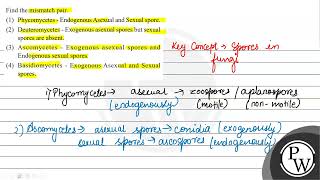 Find the mismatch pair.
(1) Phycomycetes - Endogenous Asexual and Sexual spore.
(2) Deuteromycetes - Exogenous asexual spores but sexual
spores are absent.
(3) Ascomycetes - Exogenous asexual spores and
Endogenous sexual spores
(4) Basidiomycetes - Exogenous Asexual and Sexual
spores.
Key Concept → Spores in
fungi
1) Phycomycetes → asexual → zoospores / aplanospores
(endogenously) (motile) (non-motile)
2) Ascomycetes → asexual spores → conidia (exogenously)
sexual spores → ascospores (endogenously)
PW